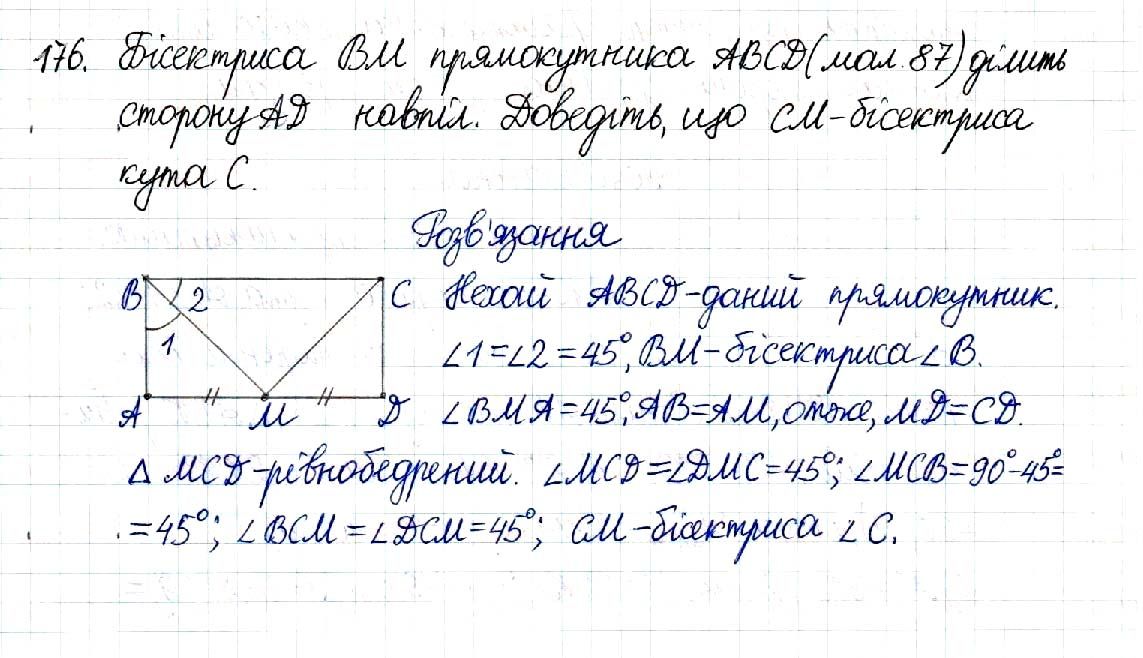 176. Бісектриса BM прямокутника ABCD (мал. 87) ділить
сторону AD навпіл. Доведіть, що CM - бісектриса
кута C.
Розв'язання
B 2 C Нехай ABCD - даний прямокутник.
1 ∠1 = ∠2 = 45°, BM - бісектриса ∠B.
A M D ∠BMA = 45°, AB = AM, отже, MD = CD.
Δ MCD - рівнобедрений. ∠MCD = ∠DMC = 45°; ∠MCB = 90° - 45° =
= 45°; ∠BCM = ∠DCM = 45°; CM - бісектриса ∠C.